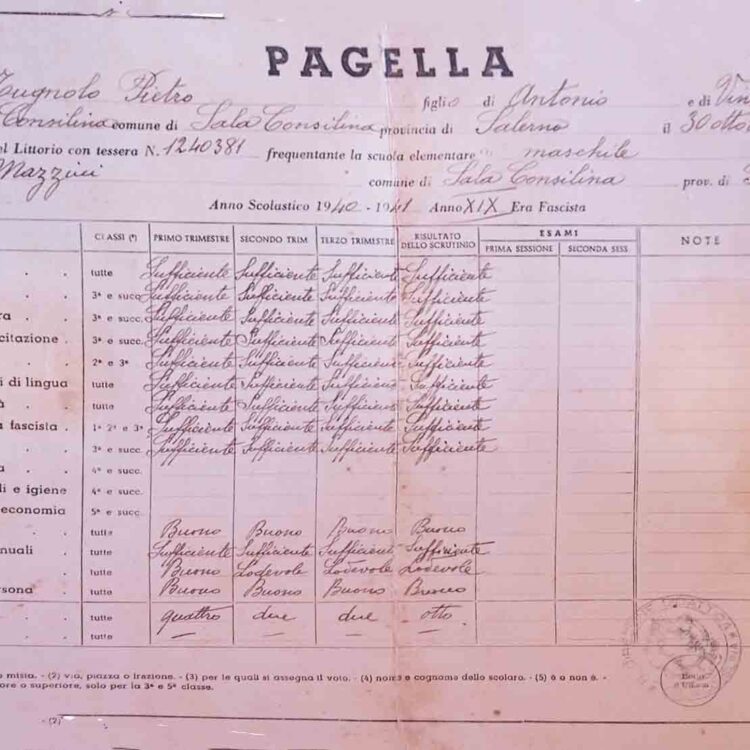 PAGELLA
Tugnolo Pietro figlio di Antonio e di Vin
Consilina comune di Sala Consilina provincia di Salerno il 30 otto
el Littorio con tessera N. 1240381 frequentante la scuola elementare maschile
Mazzini comune di Sala Consilina prov. di
Anno Scolastico 1940 - 1941 Anno XIX Era Fascista
CLASSI (*) PRIMO TRIMESTRE SECONDO TRIM TERZO TRIMESTRE RISULTATO DELLO SCRUTINIO ESAMI NOTE
PRIMA SESSIONE SECONDA SESS
. . tutte Sufficiente Sufficiente Sufficiente Sufficiente
. . 3ª e succ Sufficiente Sufficiente Sufficiente Sufficiente
ra . 3ª e succ. Sufficiente Sufficiente Sufficiente Sufficiente
citazione . 3ª e succ. Sufficiente Sufficiente Sufficiente Sufficiente
. . 2ª e 3ª Sufficiente Sufficiente Sufficiente Sufficiente
i di lingua tutte Sufficiente Sufficiente Sufficiente Sufficiente
à . tutte Sufficiente Sufficiente Sufficiente Sufficiente
a fascista . 1ª 2ª e 3ª Sufficiente Sufficiente Sufficiente Sufficiente
. . 3ª e succ. Sufficiente Sufficiente Sufficiente Sufficiente
a . 4ª e succ.
li e igiene 4ª e succ.
economia 5ª e succ.
. . tutte Buono Buono Buono Buono
nuali . tutte Sufficiente Sufficiente Sufficiente Sufficiente
. . tutte Buono Lodevole Lodevole Lodevole
rsona . tutte Buono Buono Buono Buono
. . tutte quattro due due otto
. . tutte — — — —
o mista. - (2) via, piazza o frazione. - (3) per le quali si assegna il voto. - (4) nome e cognome dello scolaro. - (5) è o non è.
ore o superiore, solo per la 3ª e 5ª classe.
Bollo
d'Ufficio
- (2)